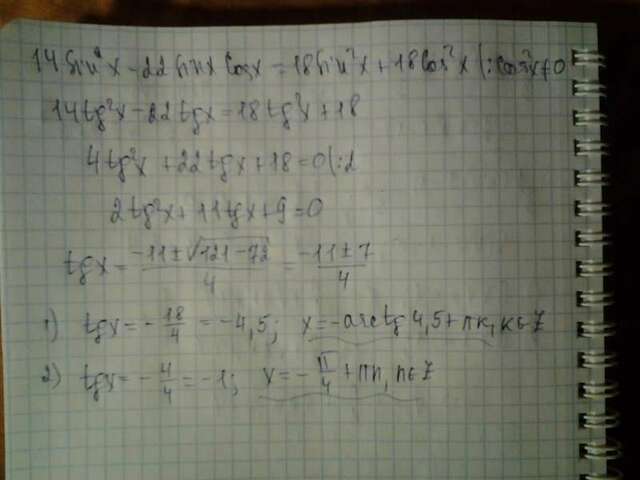 14 sin²x - 22 sinx cosx = 18 sin²x + 18 cos²x |: cos²x ≠ 0
14 tg²x - 22 tgx = 18 tg²x + 18
4 tg²x + 22 tgx + 18 = 0 |: 2
2 tg²x + 11 tgx + 9 = 0
tgx = (-11 ± √(121 - 72))/4 = (-11 ± 7)/4
1) tgx = -18/4 = -4,5; x = -arctg 4,5 + πk, k ∈ Z
2) tgx = -4/4 = -1; x = -π/4 + πn, n ∈ Z